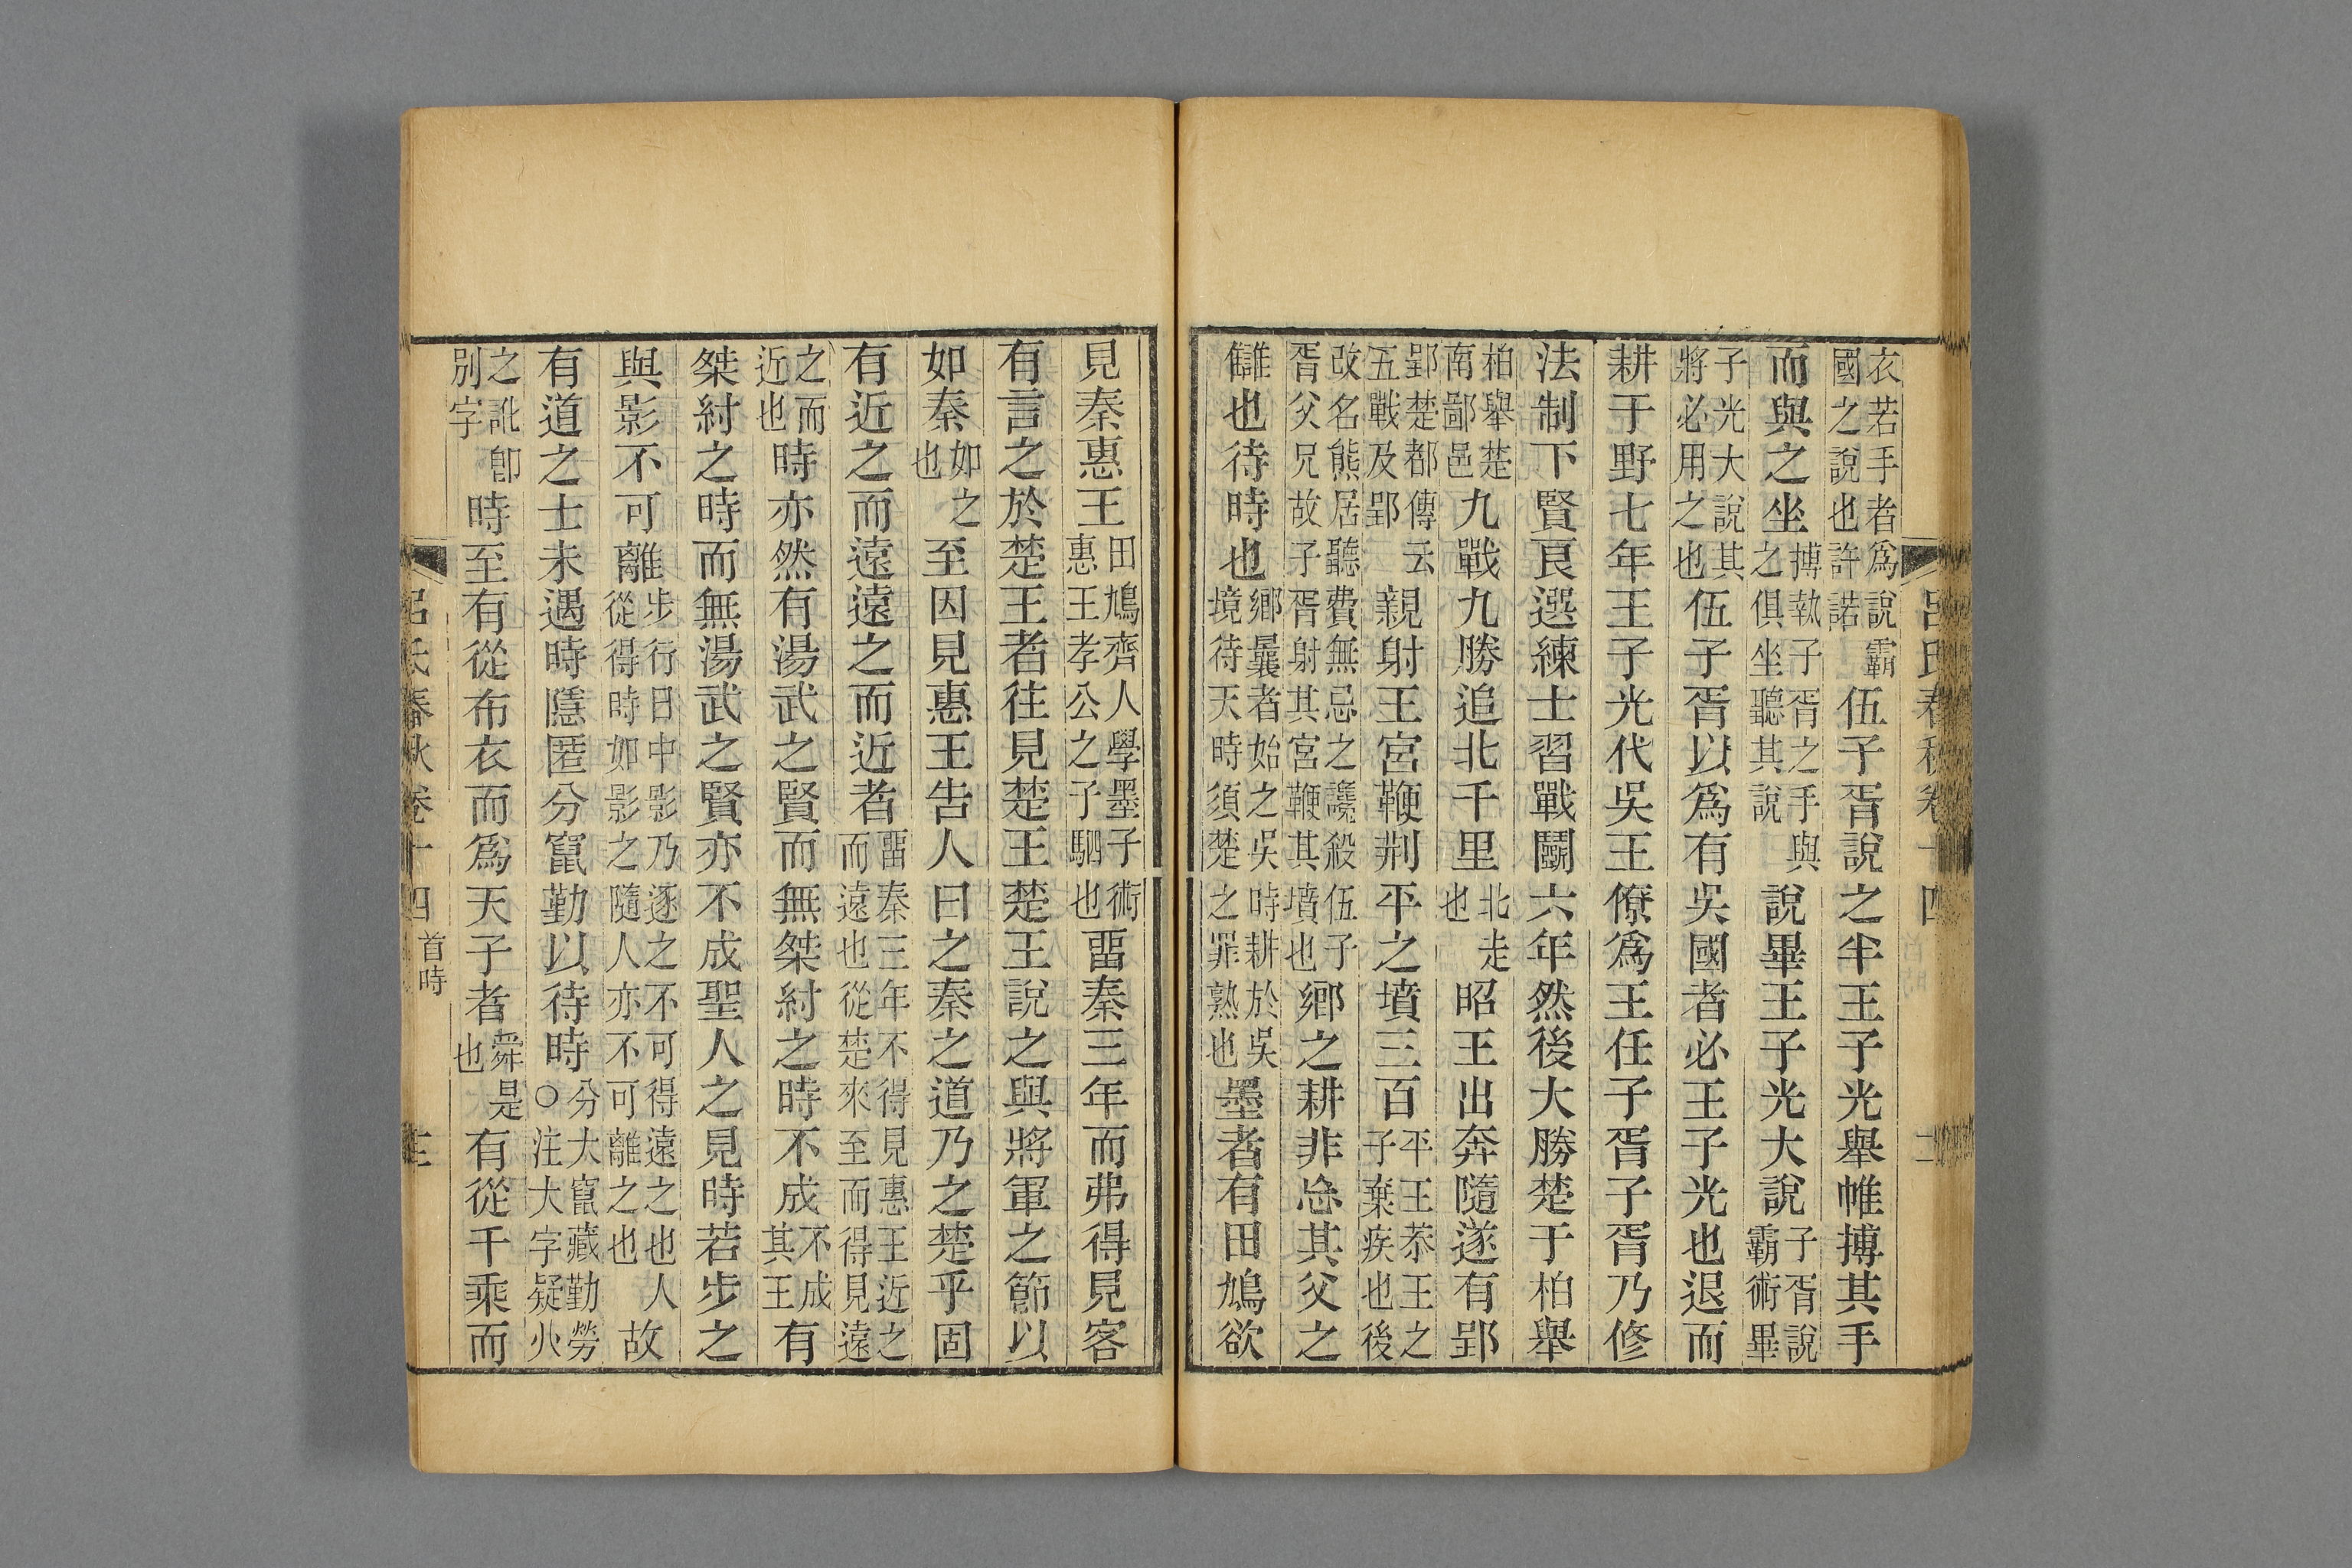 衣若手者爲說霸國之說也許諾伍子胥說之半王子光舉帷搏其手
而與之坐搏執子胥之手與之俱坐聽其說說畢王子光大說子胥說霸術畢
子光大說其將必用之也伍子胥以爲有吳國者必王子光也退而
耕于野七年王子光代吳王僚爲王任子胥子胥乃修
法制下賢良選練士習戰鬭六年然後大勝楚于柏舉
柏舉楚南鄙邑九戰九勝追北千里北走也昭王出奔隨遂有郢
郢楚都傳云五戰及郢親射王宮鞭荆平之墳三百平王恭王之子棄疾也後
改名熊居聽費無忌之讒殺伍子胥父兄故子胥射其宮鞭其墳也鄉之耕非忘其父之
讎也待時也鄉曩者始之吳時耕於吳境待天時須楚之罪熟也墨者有田鳩欲
見秦惠王田鳩齊人學墨子術惠王孝公之子駟也畱秦三年而弗得見客
有言之於楚王者往見楚王楚王說之與將軍之節以
如秦如之也至因見惠王告人曰之秦之道乃之楚乎固
有近之而遠遠之而近者畱秦三年不得見惠王近之而遠也從楚來至而得見遠
之而近也時亦然有湯武之賢而無桀紂之時不成不成其王有
桀紂之時而無湯武之賢亦不成聖人之見時若步之
與影不可離步行日中影乃逐之不可得遠之也人從得時如影之隨人亦不可離之也故
有道之士未遇時隱匿分竄勤以待時分大竄藏勤勞○注大字疑㸚
之訛卽別字時至有從布衣而爲天子者舜是也有從千乘而
呂氏春秋卷十四 首時